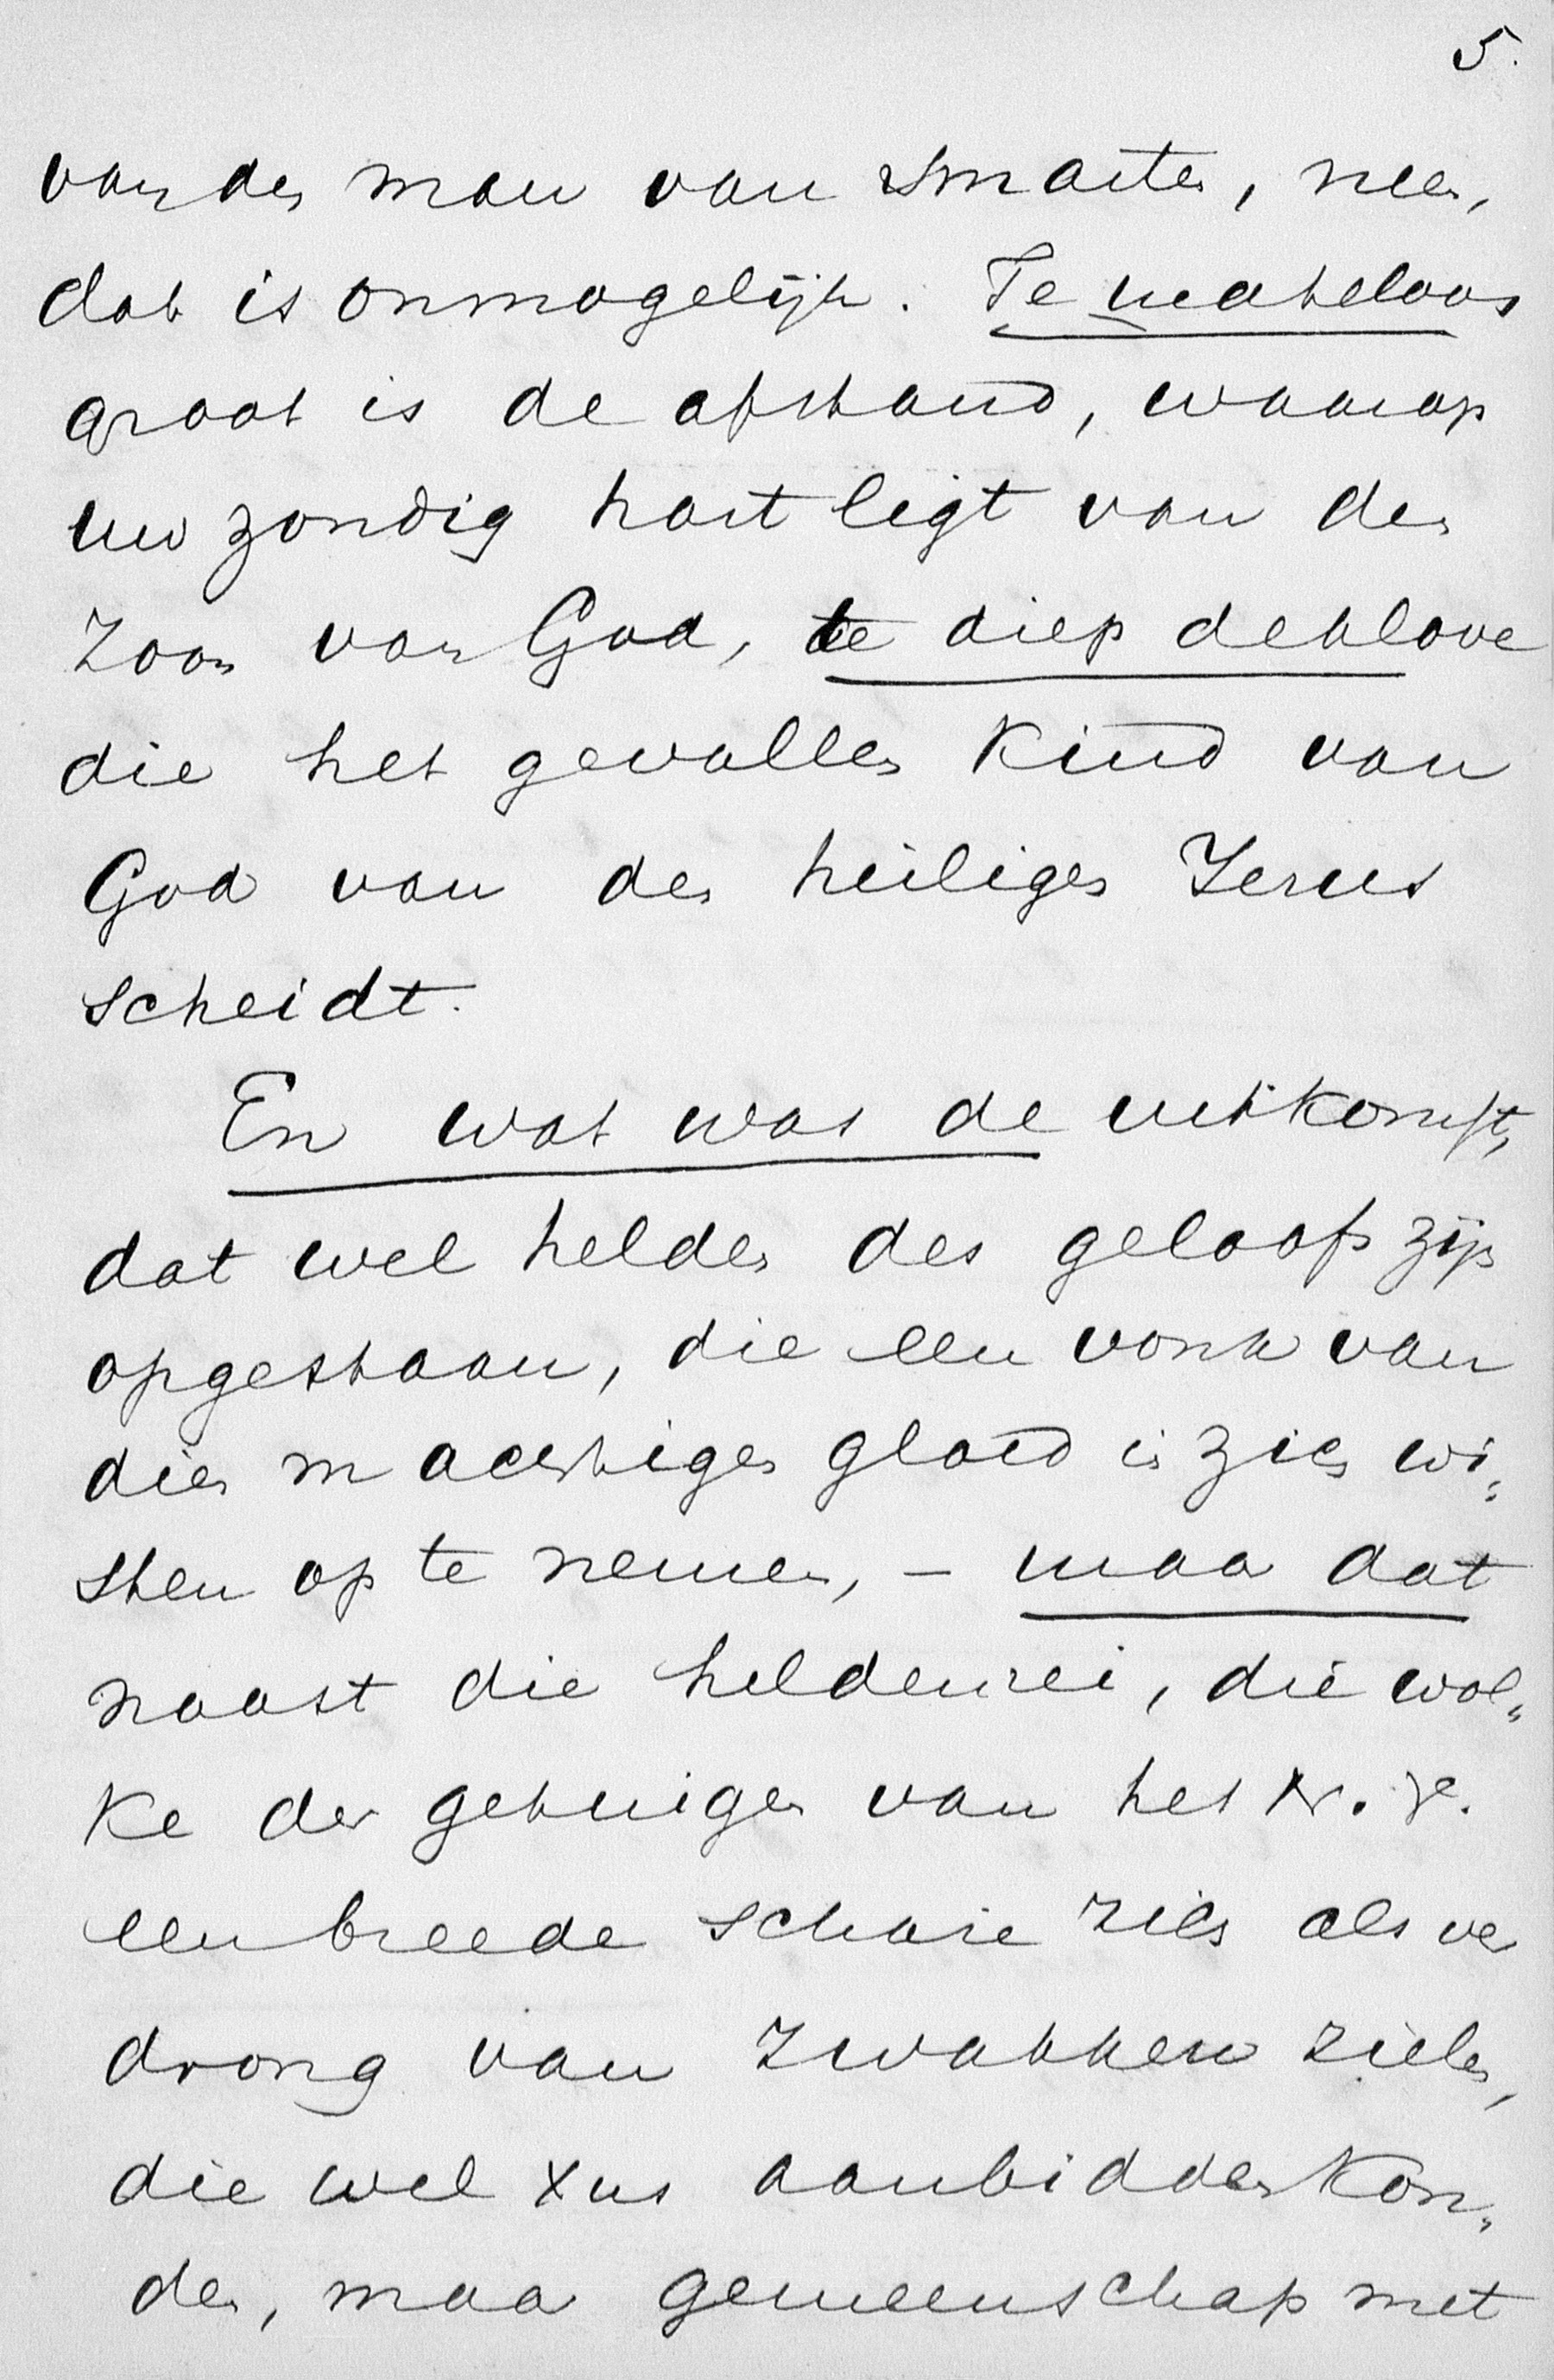 5.
van den man van smarten, neen,
dat is onmogelijk. Te mateloos
groot is de afstand, waarop
uw zondig hart ligt van den
Zoon van God, te diep de klove
die het gevallen kind van
God van den heiligen Jezus
scheidt.
En wat was de uitkomst,
dat wel helden des geloofs zijn
opgestaan, die een vonk van
dien machtigen gloed in zich wi„
sten op te nemen, – maar dat
naast die heldenrei, die wol„
ke der getuigen van het N. V.
een breede schare zich als ver
drong van zwakken zielen,
die wel Xus aanbidden kon„
den, maar gemeenschap met